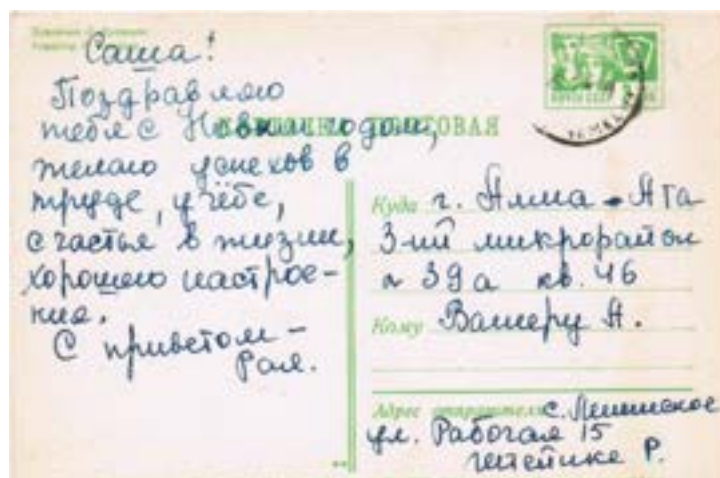 Саша!
Поздравляю
тебя с Новым годом,
желаю успехов в
труде, учёбе,
счастья в жизни,
хорошего настрое-
ния.
С приветом –
Рая.
КАРТОЧКА ПОЧТОВАЯ
ПОЧТА СССР
Куда г. Алма-Ата
3-ий микрорайон
д 39а кв. 46
Кому Вашеру А.
Адрес отправителя: с. Ленинское
ул. Рабочая 15
Р.